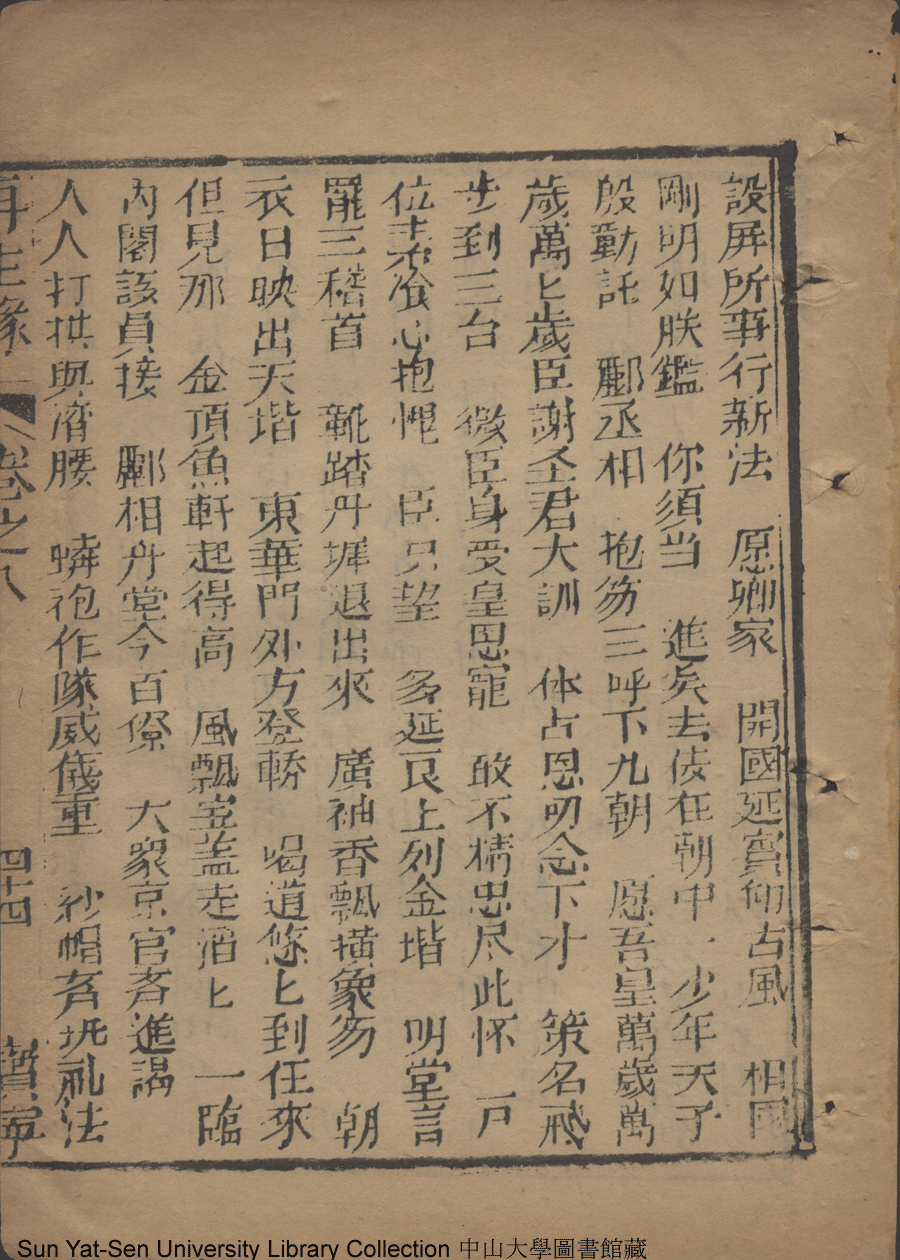 設屏所事行新法 愿卿家 開國延賓仰古風 相國
剛明如朕鑑 你須当 進矣去佞在朝中 少年天子
殷勤託 酈丞相 抱笏三呼下九朝 愿吾皇萬歲萬
歲萬匕歲臣謝圣君大訓 体占恩叨念下才 策名
步到三台 微臣身受皇恩寵 敢不精忠尽此怀 一戸
位素飡心抱愧 臣只望 多延良士列金堦 明堂言
罷三稽首 靴踏丹墀退出來 廣袖香飄擁象笏 朝
衣日映出天堦 東華門外方登轎 喝道悠匕到任來
但見那 金頂魚軒起得高 風飄宝盖走滔匕 一臨
內閣該員接 酈相升堂会百僚 大衆京官斉進謁
人人打拱與濟腰 蟒袍作隊威儀重 紗帽斉 礼法
再生緣 卷之八 四十四 寶寧
Sun Yat-Sen University Library Collection 中山大學圖書館藏